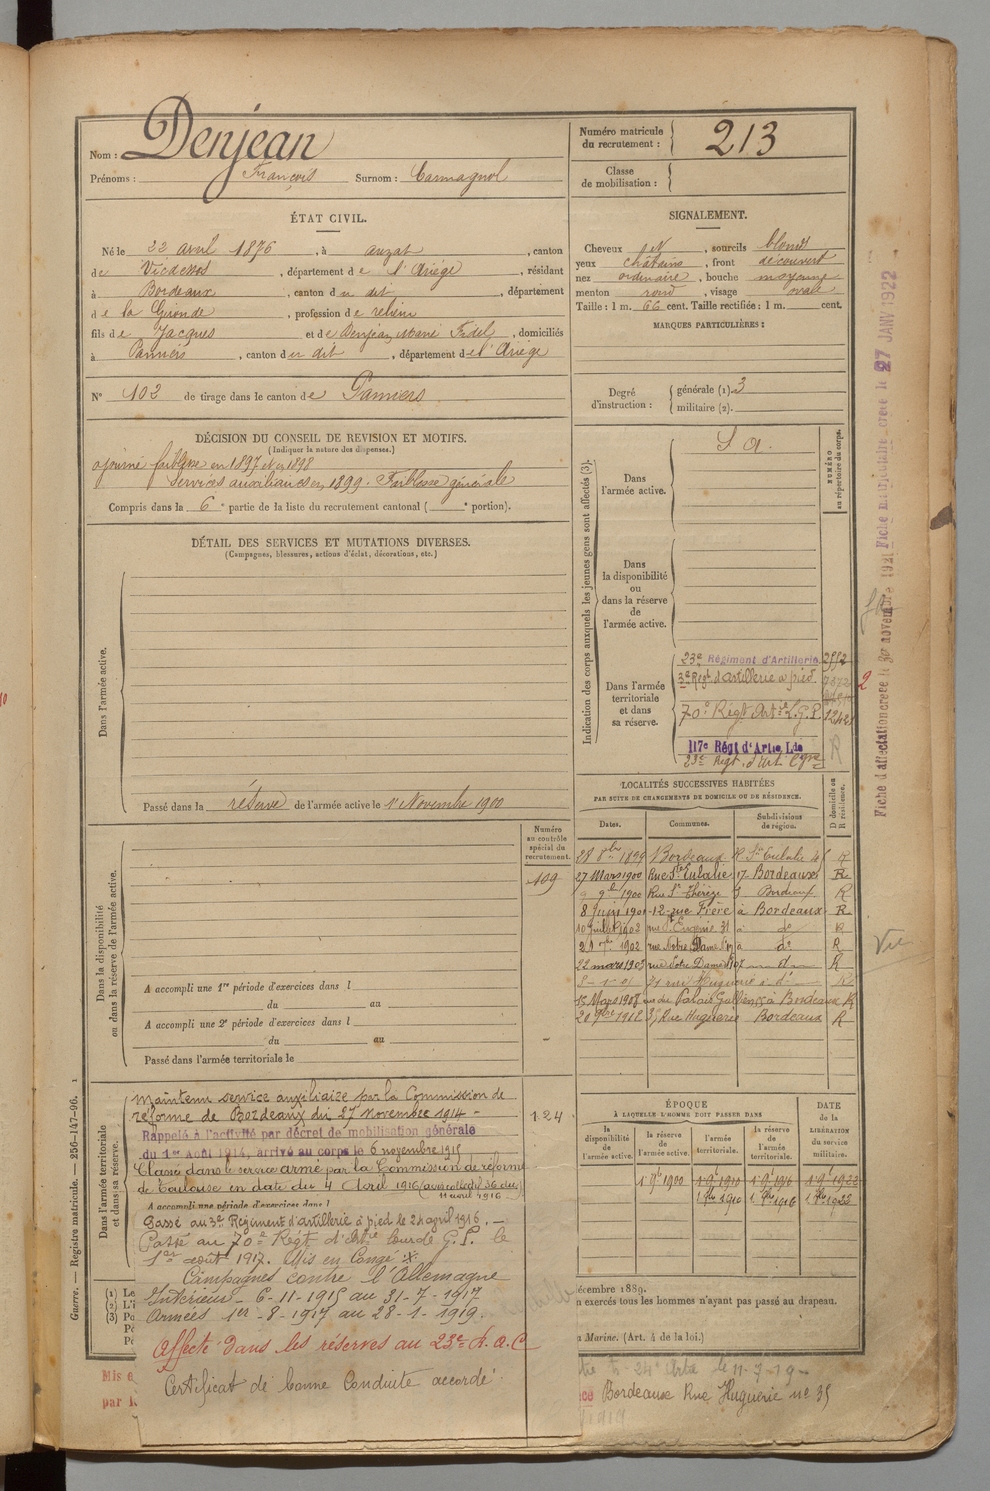 Nom : Denjean
Prénoms : François Surnom : Carmagnol
Numéro matricule du recrutement : 213
Classe de mobilisation :
ÉTAT CIVIL.
Né le 22 avril 1876, à auzat, canton
de Vicdessos, département de l'Ariège, résidant
à Bordeaux, canton du dit, département
de la Gironde, profession de
fils de Jacques et de Denjean Marie Fidel, domiciliés
à Pamiers, canton du dit, département de l'Ariège
N° 102 de tirage dans le canton de Pamiers
SIGNALEMENT.
Cheveux N, sourcils blonds
yeux châtains, front découvert
nez ordinaire, bouche moyenne
menton rond, visage ovale
Taille : 1 m. 66 cent. Taille rectifiée : 1 m. cent.
MARQUES PARTICULIÈRES :
Degré d'instruction : générale (1). 3
militaire (2).
DÉCISION DU CONSEIL DE REVISION ET MOTIFS.
(Indiquer la nature des dispenses.)
ajourné faiblesse en 1897 et en 1898
Services auxiliaires en 1899. Faiblesse générale
Compris dans la 6e partie de la liste du recrutement cantonal ( e portion).
DÉTAIL DES SERVICES ET MUTATIONS DIVERSES.
(Campagnes, blessures, actions d'éclat, décorations, etc.)
Dans l'armée active.
Passé dans la réserve de l'armée active le 1er Novembre 1900
Indication des corps auxquels les jeunes gens sont affectés (3).
NUMÉRO au répertoire du corps.
Dans l'armée active.
S a.
Dans la disponibilité ou dans la réserve de l'armée active.
Dans l'armée territoriale et dans sa réserve.
23e Régiment d'Artillerie
3e Régt d'artillerie à pied.
70e Régt Artie L.G.P.
117e Régt d'Artie Lde
23e Régt. d'Art. Cgne
LOCALITÉS SUCCESSIVES HABITÉES
PAR SUITE DE CHANGEMENTS DE DOMICILE OU DE RÉSIDENCE.
D domicile ou R résidence.
Dates. Communes. Subdivisions de région.
28 8bre 1899 Bordeaux R. Ste Eulalie R
27 Mars 1900 Rue Ste Eulalie 17 Bordeaux R
9bre 1900 Rue Ste Thérèze Bordeaux R
8 Juin 1901 12 rue Frère à Bordeaux R
10 Juillet 1902 rue Ste Eugénie 31 à do R
1902 rue Notre Dame à do R
22 mars 1903 rue Notre Dame d R
71 rue Huguerie à d
15 Mars 1908 rue du Palais Gallien à Bordeaux R
1912 35 Rue Huguerie Bordeaux R
Dans la disponibilité ou dans la réserve de l'armée active.
Numéro au contrôle spécial du recrutement.
109
A accompli une 1re période d'exercices dans l
du au
A accompli une 2e période d'exercices dans l
du au
Passé dans l'armée territoriale le
Dans l'armée territoriale et dans sa réserve.
Maintenu service auxiliaire par la Commission de
réforme de Bordeaux du 27 novembre 1914 -
124
Rappelé à l'activité par décret de mobilisation générale
du 1er Août 1914, arrivé au corps le 6 novembre 1915
Classé dans le service armé par la Commission de réforme
de Toulouse en date du 4 Avril 1916
11 avril 1916
A accompli une période d'exercices dans l
Passé au 3e Régiment d'artillerie à pied le 24 april 1916. -
Passé au 70e Régt d'Artie lourde G. P. le
1er août 1917. Mis en Congé
Campagnes contre l'Allemagne
Intérieur - 6-11-1915 au 31-7-1917
Armées 1er-8-1917 au 28-1-1919.
Affecté dans les réserves au 23e R.A.C
Certificat de bonne Conduite accordé
ÉPOQUE
À LAQUELLE L'HOMME DOIT PASSER DANS
DATE DE LA LIBÉRATION du service militaire.
la disponibilité de l'armée active. la réserve de l'armée active. l'armée territoriale. la réserve de l'armée territoriale.
1 9bre 1900 1 9bre 1910 1 9bre 1916 1 9bre 1922
écembre 1889.
n exercés tous les hommes n'ayant pas passé au drapeau.
a Marine. (Art. 4 de la loi.)
Bordeaux Rue Huguerie no 35
(1) Le
(2) L'i
(3) Po
Mis e
par l
Guerre. — Registre matricule. — 256-147-96. 1
Fiche d'affectation créée le 30 novembre 1921 Fiche matriculaire créée le 27 JANV 1922
Vu